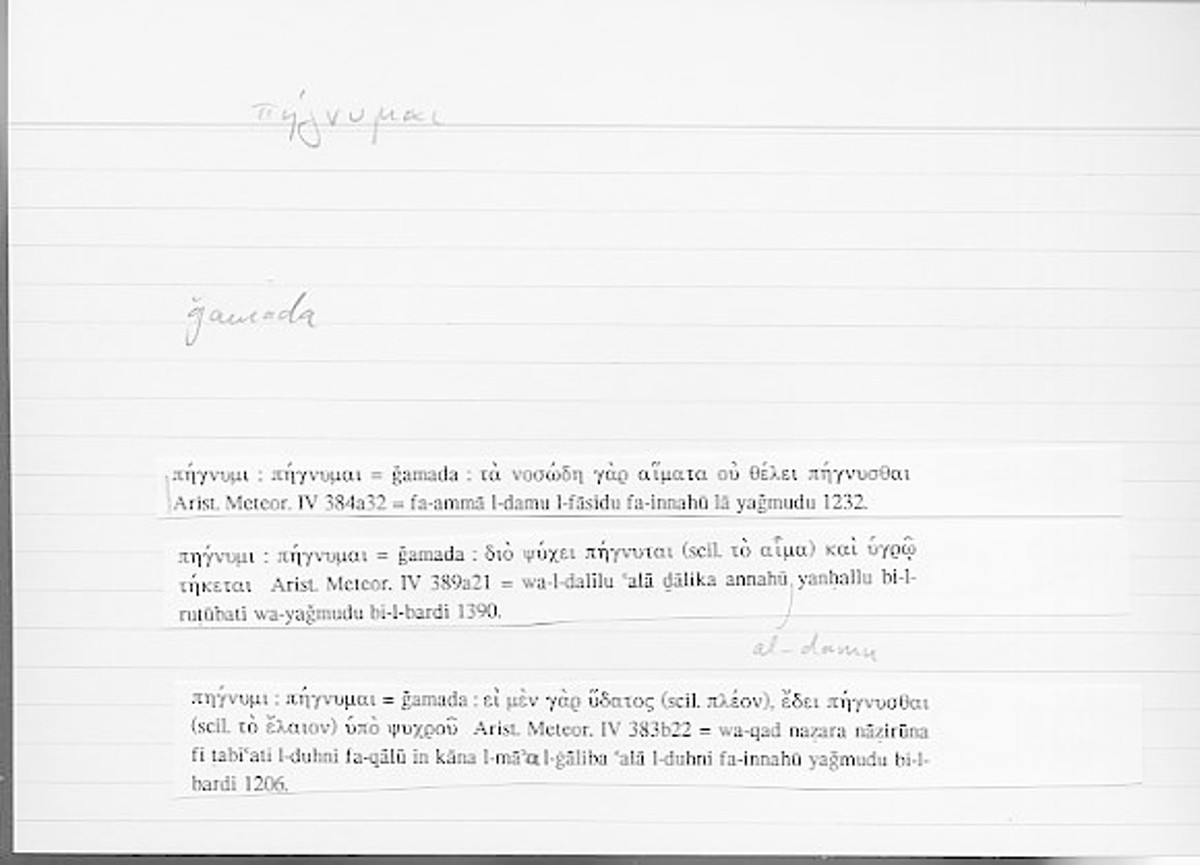 πήγνυμαι
ǧamada
πήγνυμι : πήγνυμαι = ǧamada : τὰ νοσώδη γὰρ αἵματα οὐ θέλει πήγνυσθαι
Arist. Meteor. IV 384a32 = fa-ammā l-damu l-fāsidu fa-innahū lā yaǧmudu 1232.
πηγνυμι : πήγνυμαι = ǧamada : διὸ ψύχει πήγνυται (scil. τὸ αἷμα) καὶ ὑγρῷ
τήκεται Arist. Meteor. IV 389a21 = wa-l-dalīlu ʿalā ḏālika annahū yanḥallu bi-l-
ruṭūbati wa-yaǧmudu bi-l-bardi 1390.
al-damu
πηγνυμι : πήγνυμαι = ǧamada : εἰ μὲν γὰρ ὕδατος (scil. πλέον), ἔδει πήγνυσθαι
(scil. τὸ ἔλαιον) ὑπὸ ψυχροῦ Arist. Meteor. IV 383b22 = wa-qad naẓara nāẓirūna
fī ṭabīʿati l-duhni fa-qālū in kāna l-māʾa l-ġāliba ʿalā l-duhni fa-innahū yaǧmudu bi-l-
bardi 1206.